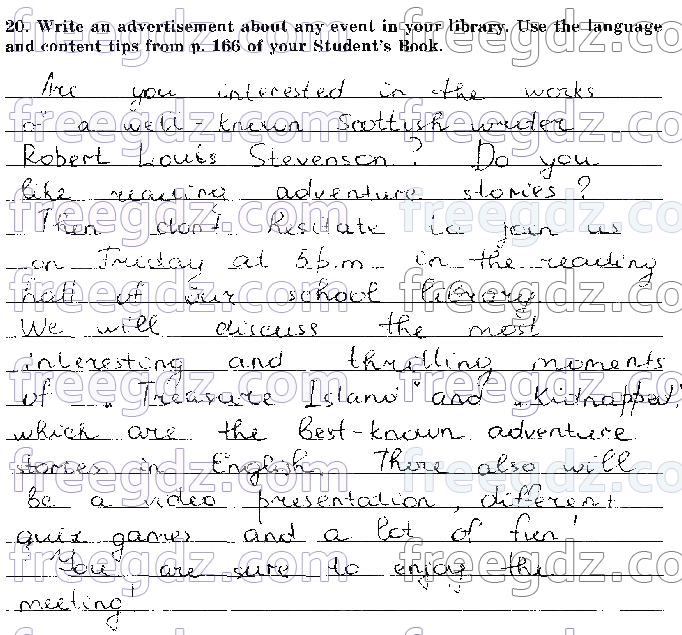 20. Write an advertisement about any event in your library. Use the language
and content tips from p. 166 of your Student's Book.
Are you interested in the works
of a well-known Scottish writer
Robert Louis Stevenson? Do you
like reading adventure stories?
Then don't hesitate to join us
on Friday at 5 p.m. in the reading
hall of our school library.
We will discuss the most
interesting and thrilling moments
of „Treasure Island" and „Kidnapped",
which are the best-known adventure
stories in English. There also will
be a video presentation, different
quiz games and a lot of fun!
You are sure to enjoy the
meeting!
freegdz.com